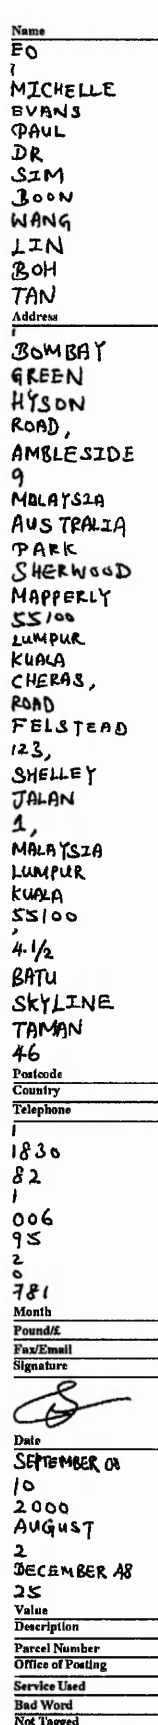 Name
EO
1
MICHELLE
EVANS
PAUL
DR
SIM
BOON
WANG
LIN
BOH
TAN
Address
1
BOMBAY
GREEN
HYSON
ROAD,
AMBLESIDE
9
MALAYSIA
AUSTRALIA
PARK
SHERWOOD
MAPPERLY
55100
LUMPUR
KUALA
CHERAS,
ROAD
FELSTEAD
123,
SHELLEY
JALAN
1,
MALAYSIA
LUMPUR
KUALA
55100
,
4.1/2
BATU
SKYLINE
TAMAN
46
Postcode
Country
Telephone
1
1830
82
1
006
95
2
0
781
Month
Pound/£
Fax/Email
Signature
Date
SEPTEMBER
10
2000
AUGUST
2
DECEMBER 98
25
Value
Description
Parcel Number
Office of Posting
Service Used
Bad Word
Not Tagged